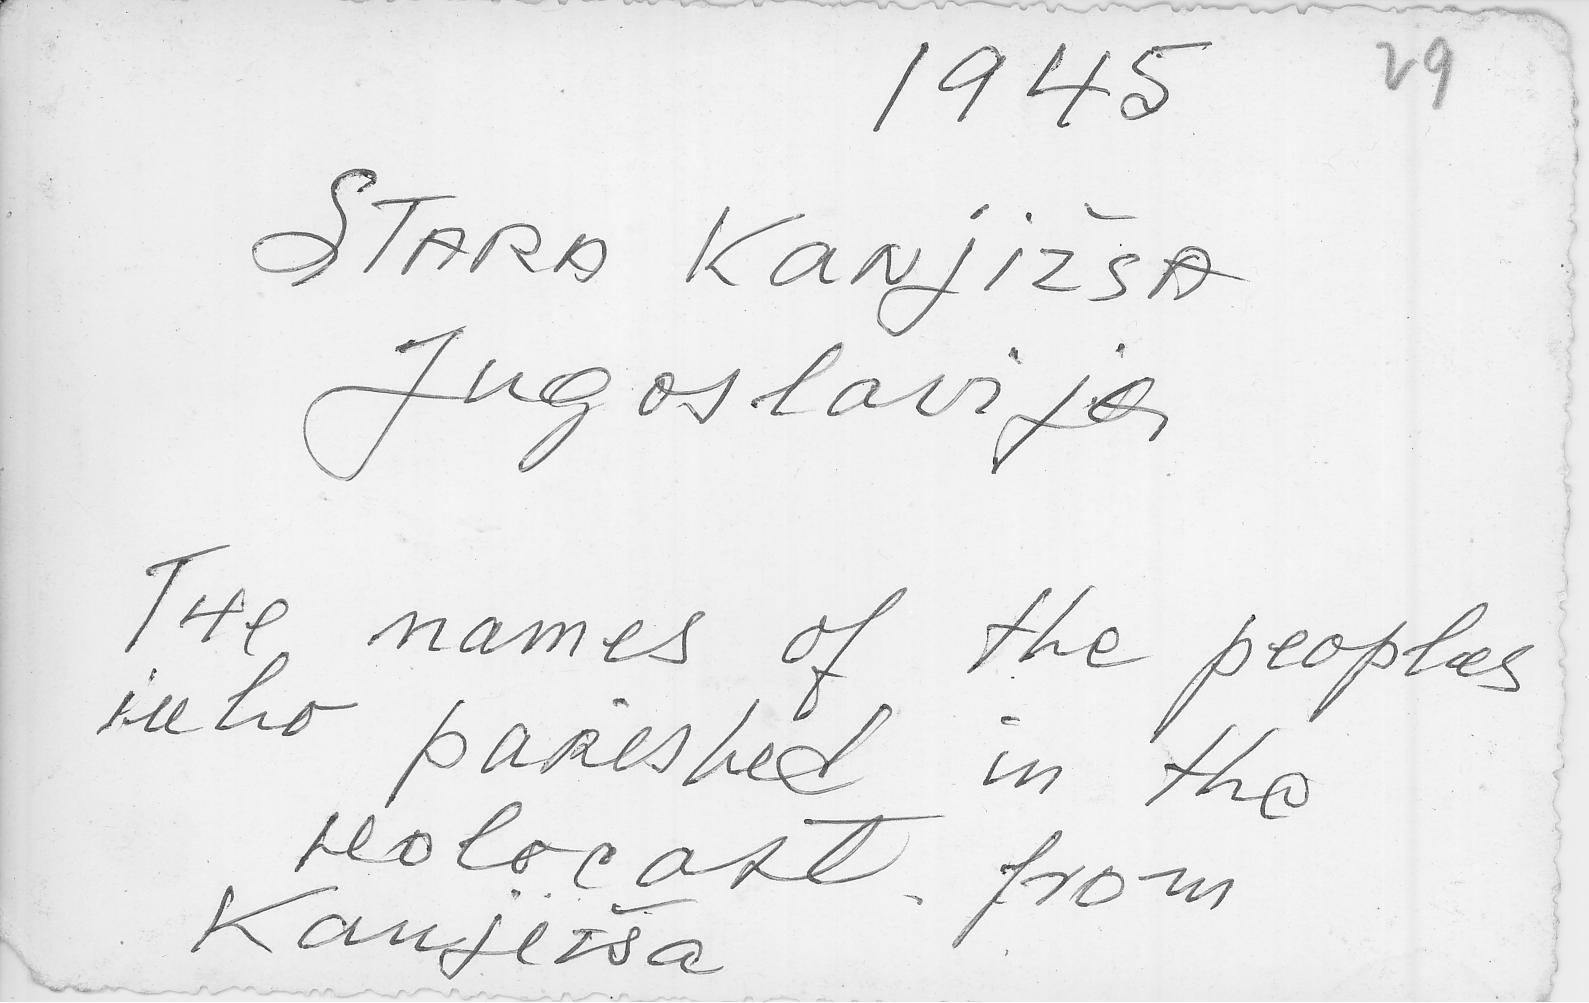 1945 29
STARA KANjižSA
Jugoslavija
THe names of the peoples
who parished in the
Holocast. from
Kanjiža